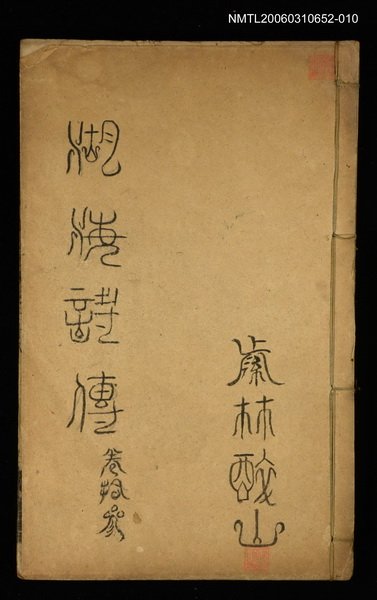 NMTL20060310652-010
湖海詩傳 卷拾叁
林酸山